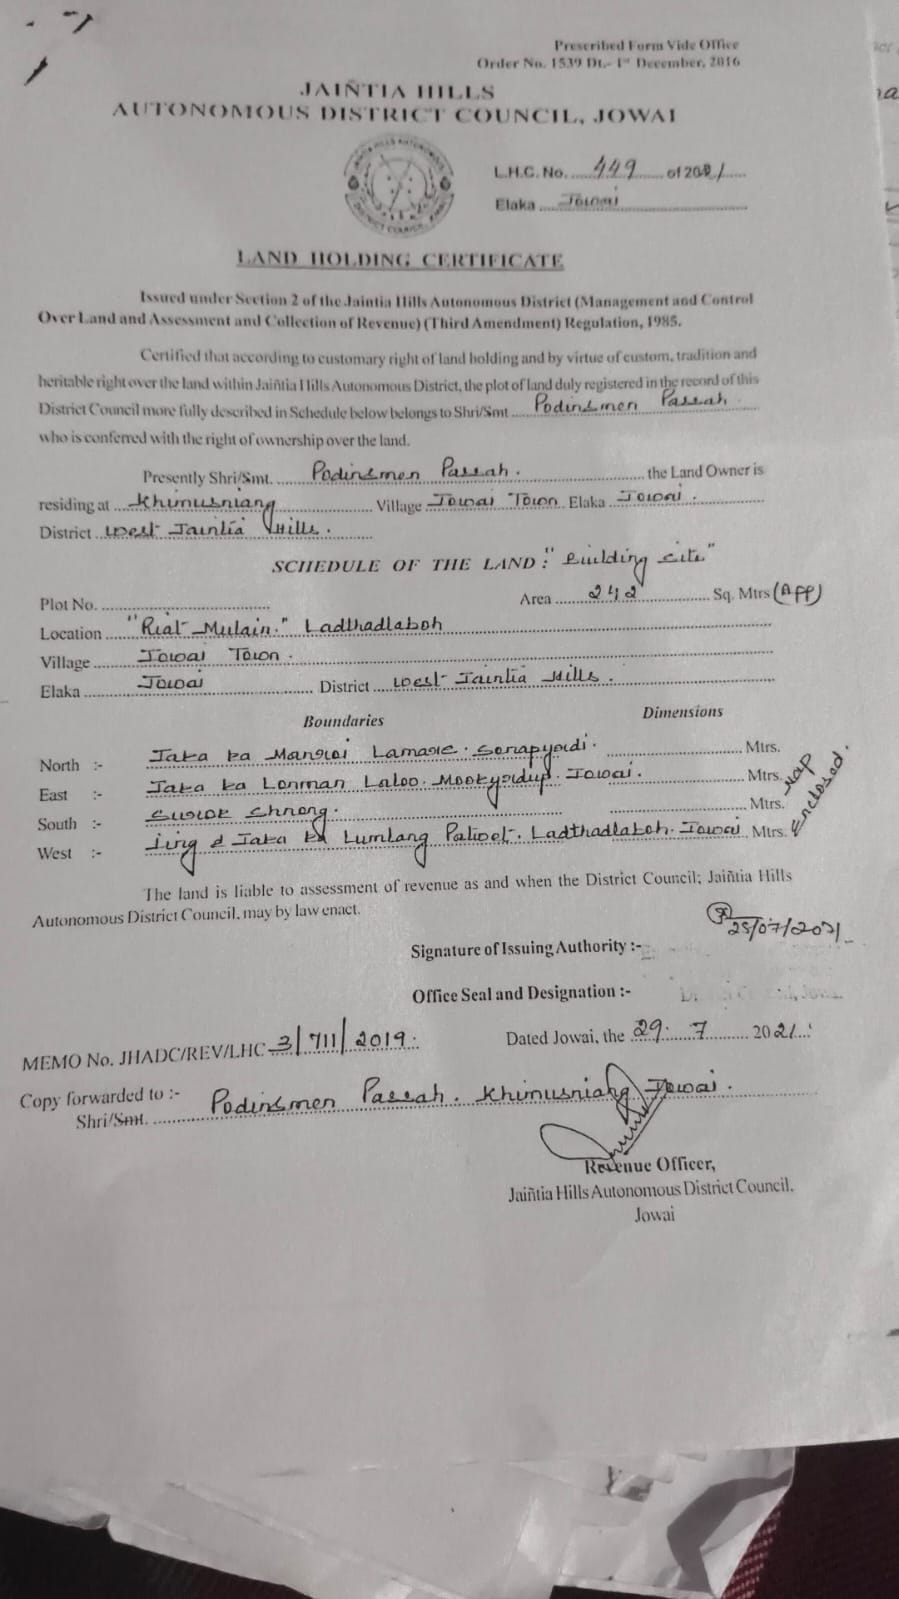 Prescribed Form Vide Office
Order No. 1539 Dt.- 1st December, 2016
JAIÑTIA HILLS
AUTONOMOUS DISTRICT COUNCIL, JOWAI
L.H.C. No. 449 of 2021
Elaka Jowai
LAND HOLDING CERTIFICATE
Issued under Section 2 of the Jaintia Hills Autonomous District (Management and Control
Over Land and Assessment and Collection of Revenue) (Third Amendment) Regulation, 1985.
Certified that according to customary right of land holding and by virtue of custom, tradition and
heritable right over the land within Jaiñtia Hills Autonomous District, the plot of land duly registered in the record of this
District Council more fully described in Schedule below belongs to Shri/Smt Podinsmen Passah
who is conferred with the right of ownership over the land.
Presently Shri/Smt. Podinsmen Passah. the Land Owner is
residing at Khimusniang Village Jowai Town Elaka Jowai.
District West Jaintia Hills.
SCHEDULE OF THE LAND : "Building Site"
Plot No. Area 242 Sq. Mtrs (APP)
Location "Rial-Mulain." Ladthadlaboh
Village Jowai Town.
Elaka Jowai District West Jaintia Hills.
Boundaries Dimensions
North :- Jaka ka Lamare. Mtrs.
East :- Jaka ka Lonman Laloo. Jowai. Mtrs.
South :- Shnong. Mtrs.
West :- & Jaka Lumlang Ladthadlaboh. Jowai Mtrs.
Map Enclosed.
The land is liable to assessment of revenue as and when the District Council; Jaiñtia Hills
Autonomous District Council, may by law enact.
/07/2021
Signature of Issuing Authority :-
Office Seal and Designation :-
MEMO No. JHADC/REV/LHC 3/711/2019. Dated Jowai, the 29. 7 2021
Copy forwarded to :-
Shri/Smt. Podinsmen Passah. Khimusniang Jowai.
Revenue Officer,
Jaiñtia Hills Autonomous District Council.
Jowai